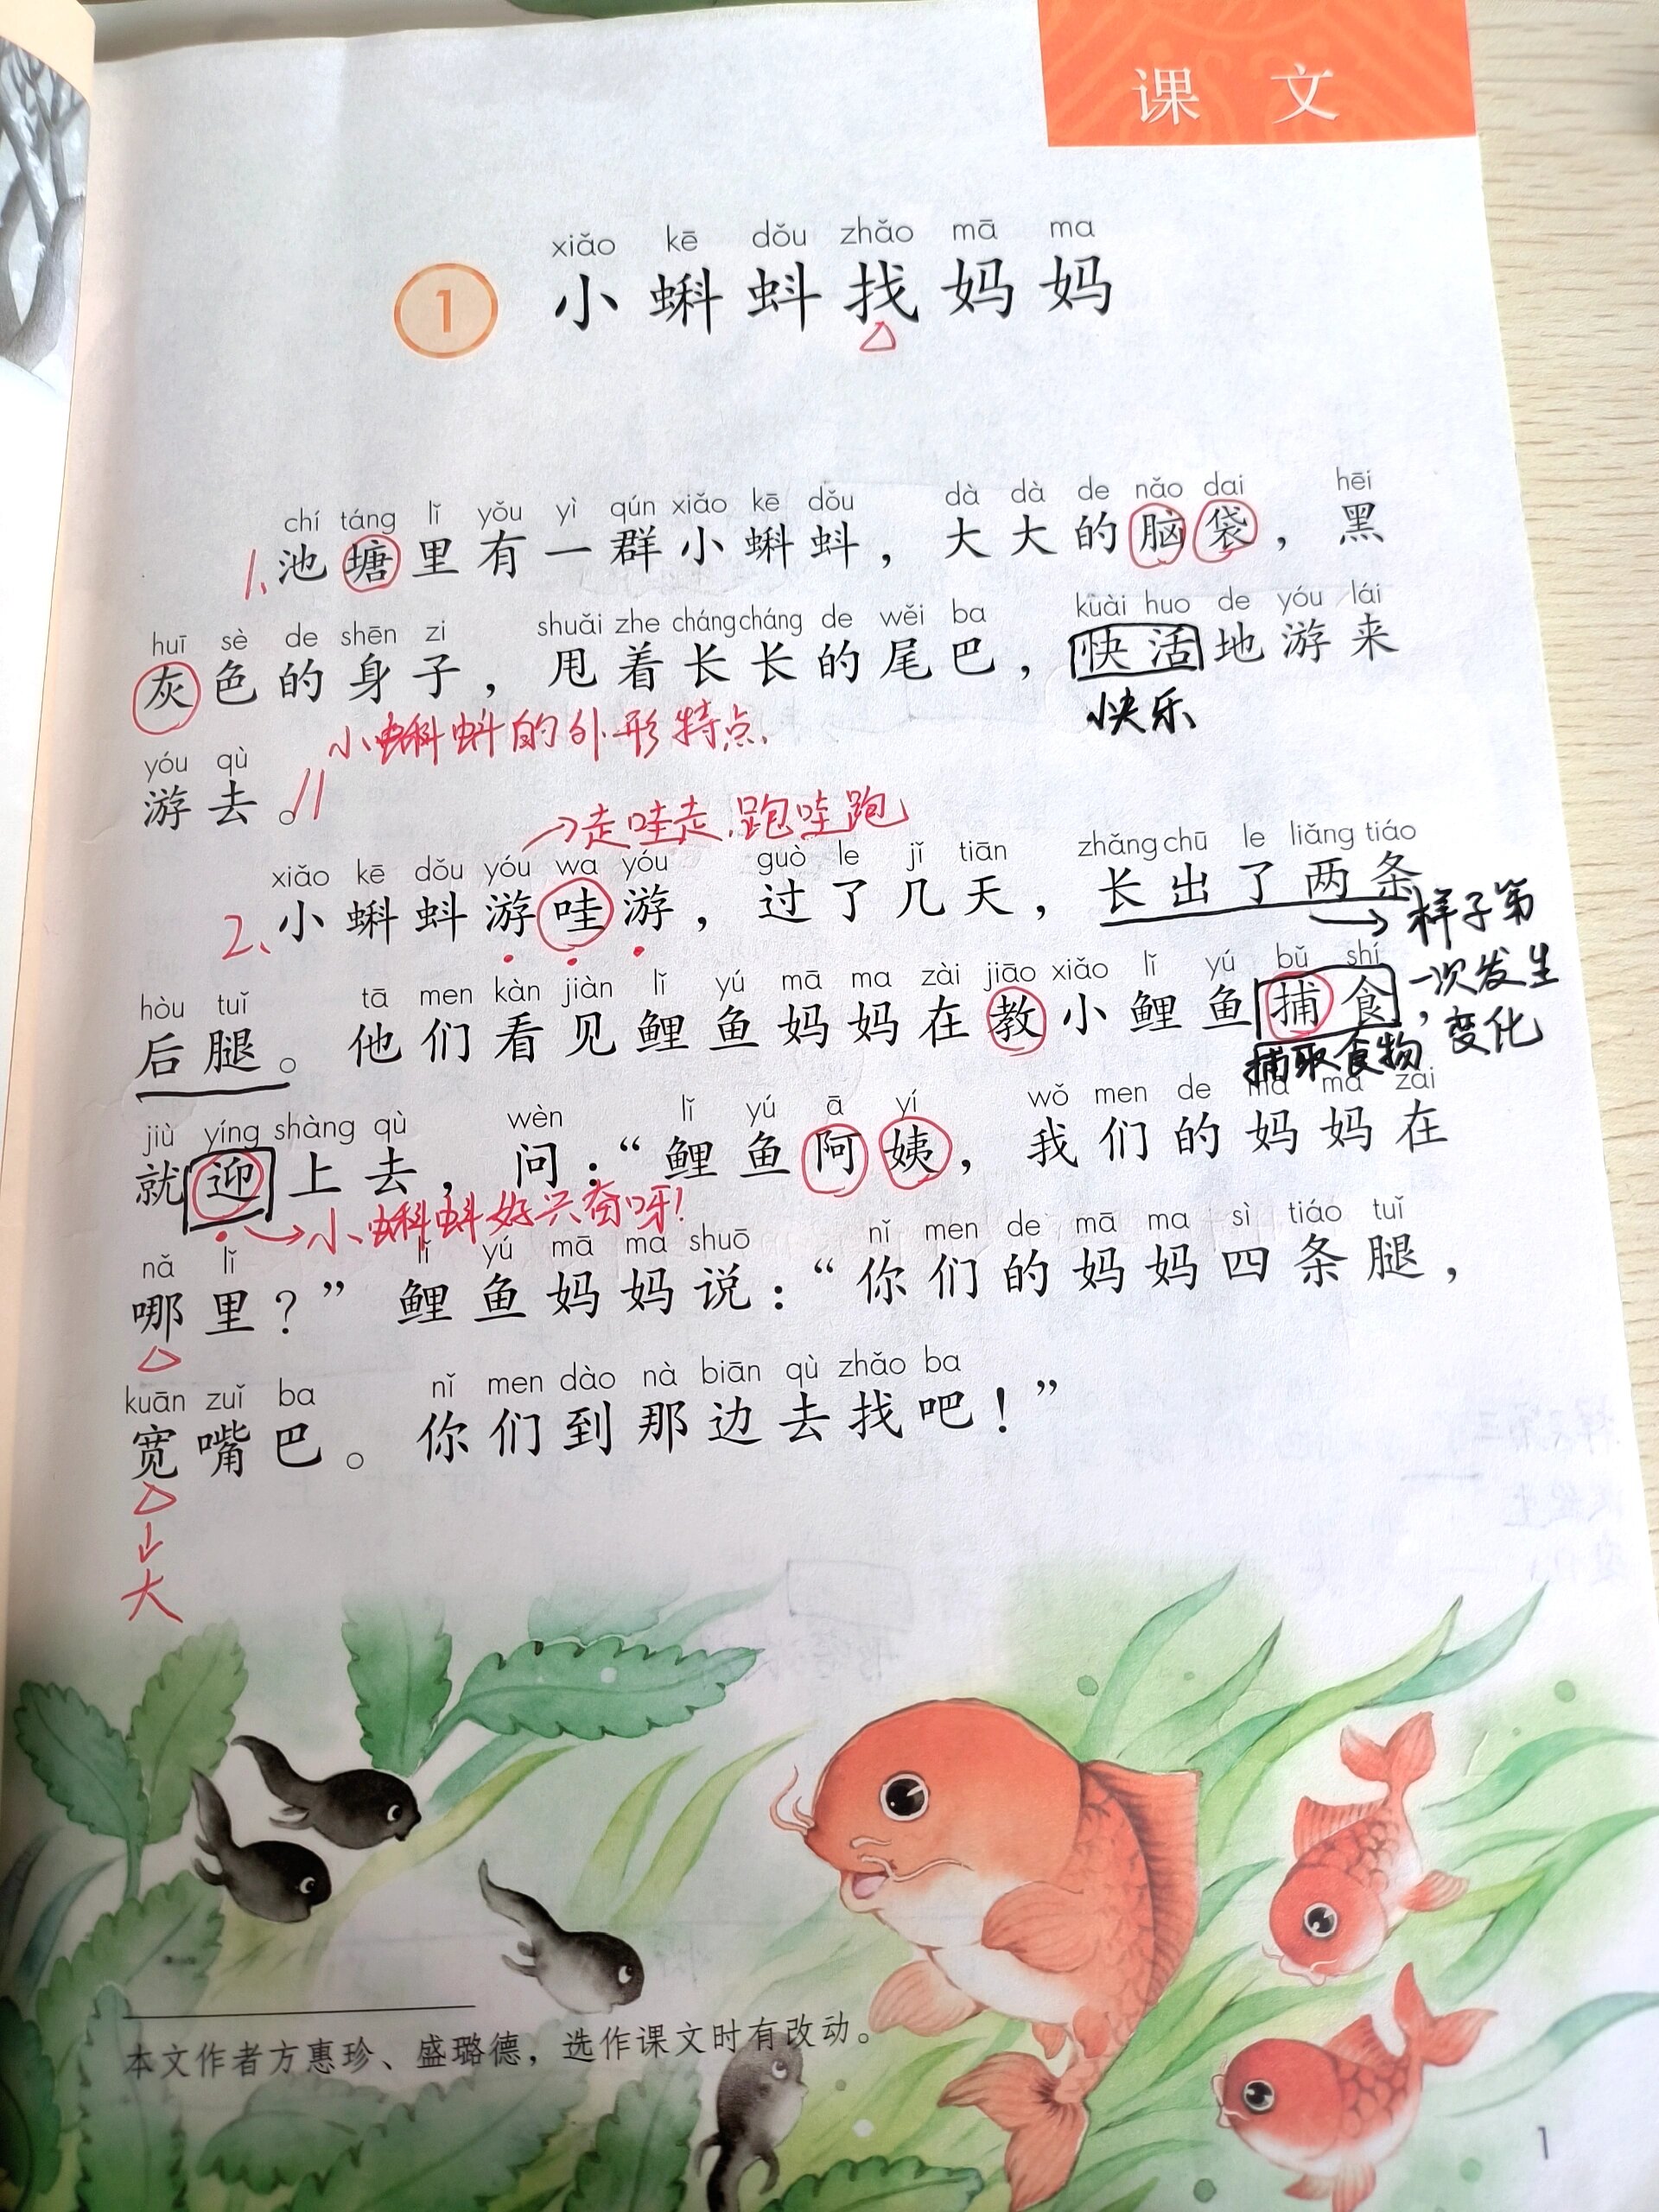 课 文
xiǎo kē dǒu zhǎo mā ma
1 小蝌蚪找妈妈
chí táng lǐ yǒu yì qún xiǎo kē dǒu dà dà de nǎo dai hēi
1、池塘里有一群小蝌蚪，大大的脑袋，黑
huī sè de shēn zi shuǎi zhe cháng cháng de wěi ba kuài huo de yóu lái
灰色的身子，甩着长长的尾巴，快活地游来
小蝌蚪的外形特点.
快乐
yóu qù
游去。
→走哇走.跑哇跑
xiǎo kē dǒu yóu wa yóu guò le jǐ tiān zhǎng chū le liǎng tiáo
2、小蝌蚪游哇游，过了几天，长出了两条
→样子第
一次发生
变化
hòu tuǐ tā men kàn jiàn lǐ yú mā ma zài jiāo xiǎo lǐ yú bǔ shí
后腿。他们看见鲤鱼妈妈在教小鲤鱼捕食，
捕取食物
jiù yíng shàng qù wèn lǐ yú ā yí wǒ men de mā ma zài
就迎上去，问：“鲤鱼阿姨，我们的妈妈在
→小蝌蚪好兴奋呀!
nǎ lǐ lǐ yú mā ma shuō nǐ men de mā ma sì tiáo tuǐ
哪里？”鲤鱼妈妈说：“你们的妈妈四条腿，
kuān zuǐ ba nǐ men dào nà biān qù zhǎo ba
宽嘴巴。你们到那边去找吧！”
↓
大
本文作者方惠珍、盛璐德，选作课文时有改动。
1